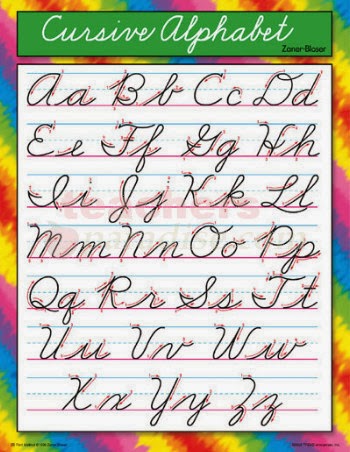 Cursive Alphabet
Zaner-Bloser
Aa Bb Cc Dd
Ee Ff Gg Hh
Ii Jj Kk Ll
teachers
Mm Nn Oo Pp
paradise.com
Qq Rr Ss Tt
Uu Vv Ww
Xx Yy Zz